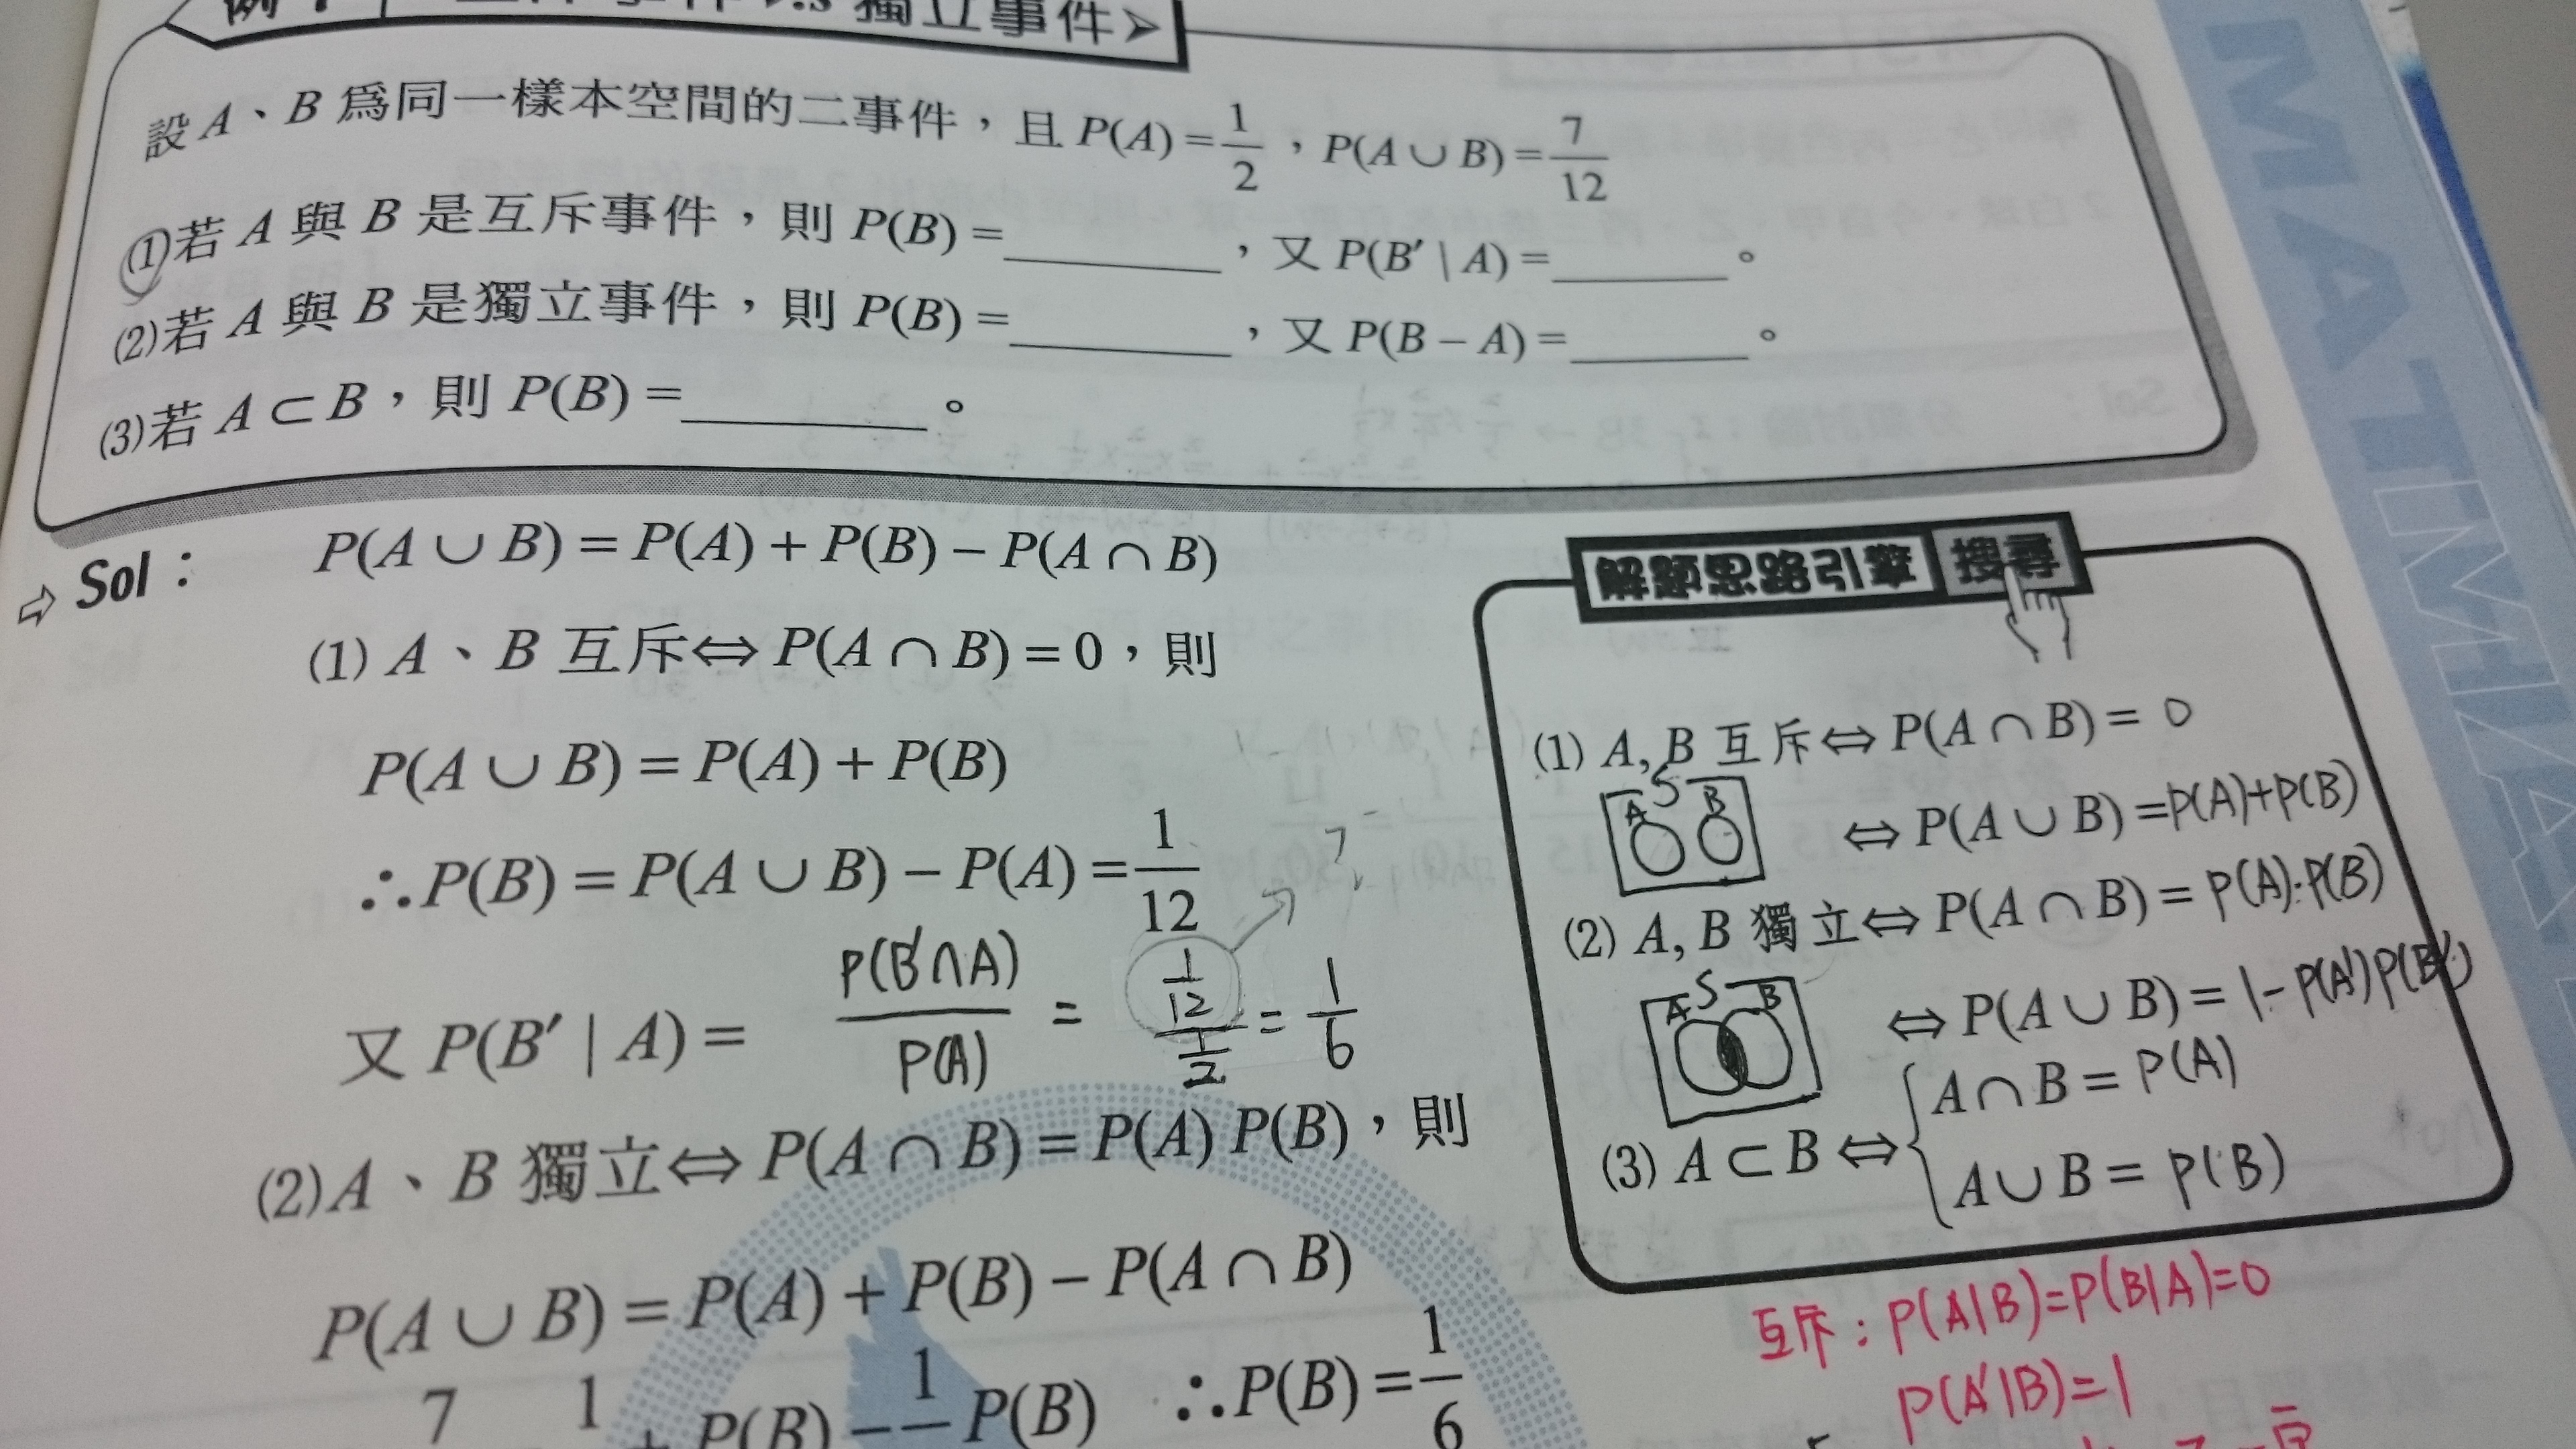 獨立事件
設 A、B 為同一樣本空間的二事件，且 P(A)=1/2，P(A∪B)=7/12
(1)若 A 與 B 是互斥事件，則 P(B)=________，又 P(B′|A)=______。
(2)若 A 與 B 是獨立事件，則 P(B)=________，又 P(B−A)=______。
(3)若 A⊂B，則 P(B)=________。
⇨ Sol：
P(A∪B)=P(A)+P(B)−P(A∩B)
(1) A、B 互斥⇔P(A∩B)=0，則
P(A∪B)=P(A)+P(B)
∴P(B)=P(A∪B)−P(A)=1/12
又 P(B′|A)= P(B′∩A)/P(A) = (1/12)/(1/2) = 1/6
(2)A、B 獨立⇔P(A∩B)=P(A)P(B)，則
P(A∪B)=P(A)+P(B)−P(A∩B)
7 1 + P(B)−1 P(B) ∴P(B)=1/6
解題思路引擎 搜尋
(1) A, B 互斥⇔P(A∩B)= 0
S
A B
⇔P(A∪B)=P(A)+P(B)
(2) A, B 獨立⇔P(A∩B)= P(A)·P(B)
S
A B
⇔P(A∪B)= 1−P(A′)P(B′)
(3) A⊂B⇔{A∩B= P(A)
A∪B= P(B)
互斥：P(A|B)=P(B|A)=0
P(A′|B)=1
MATH